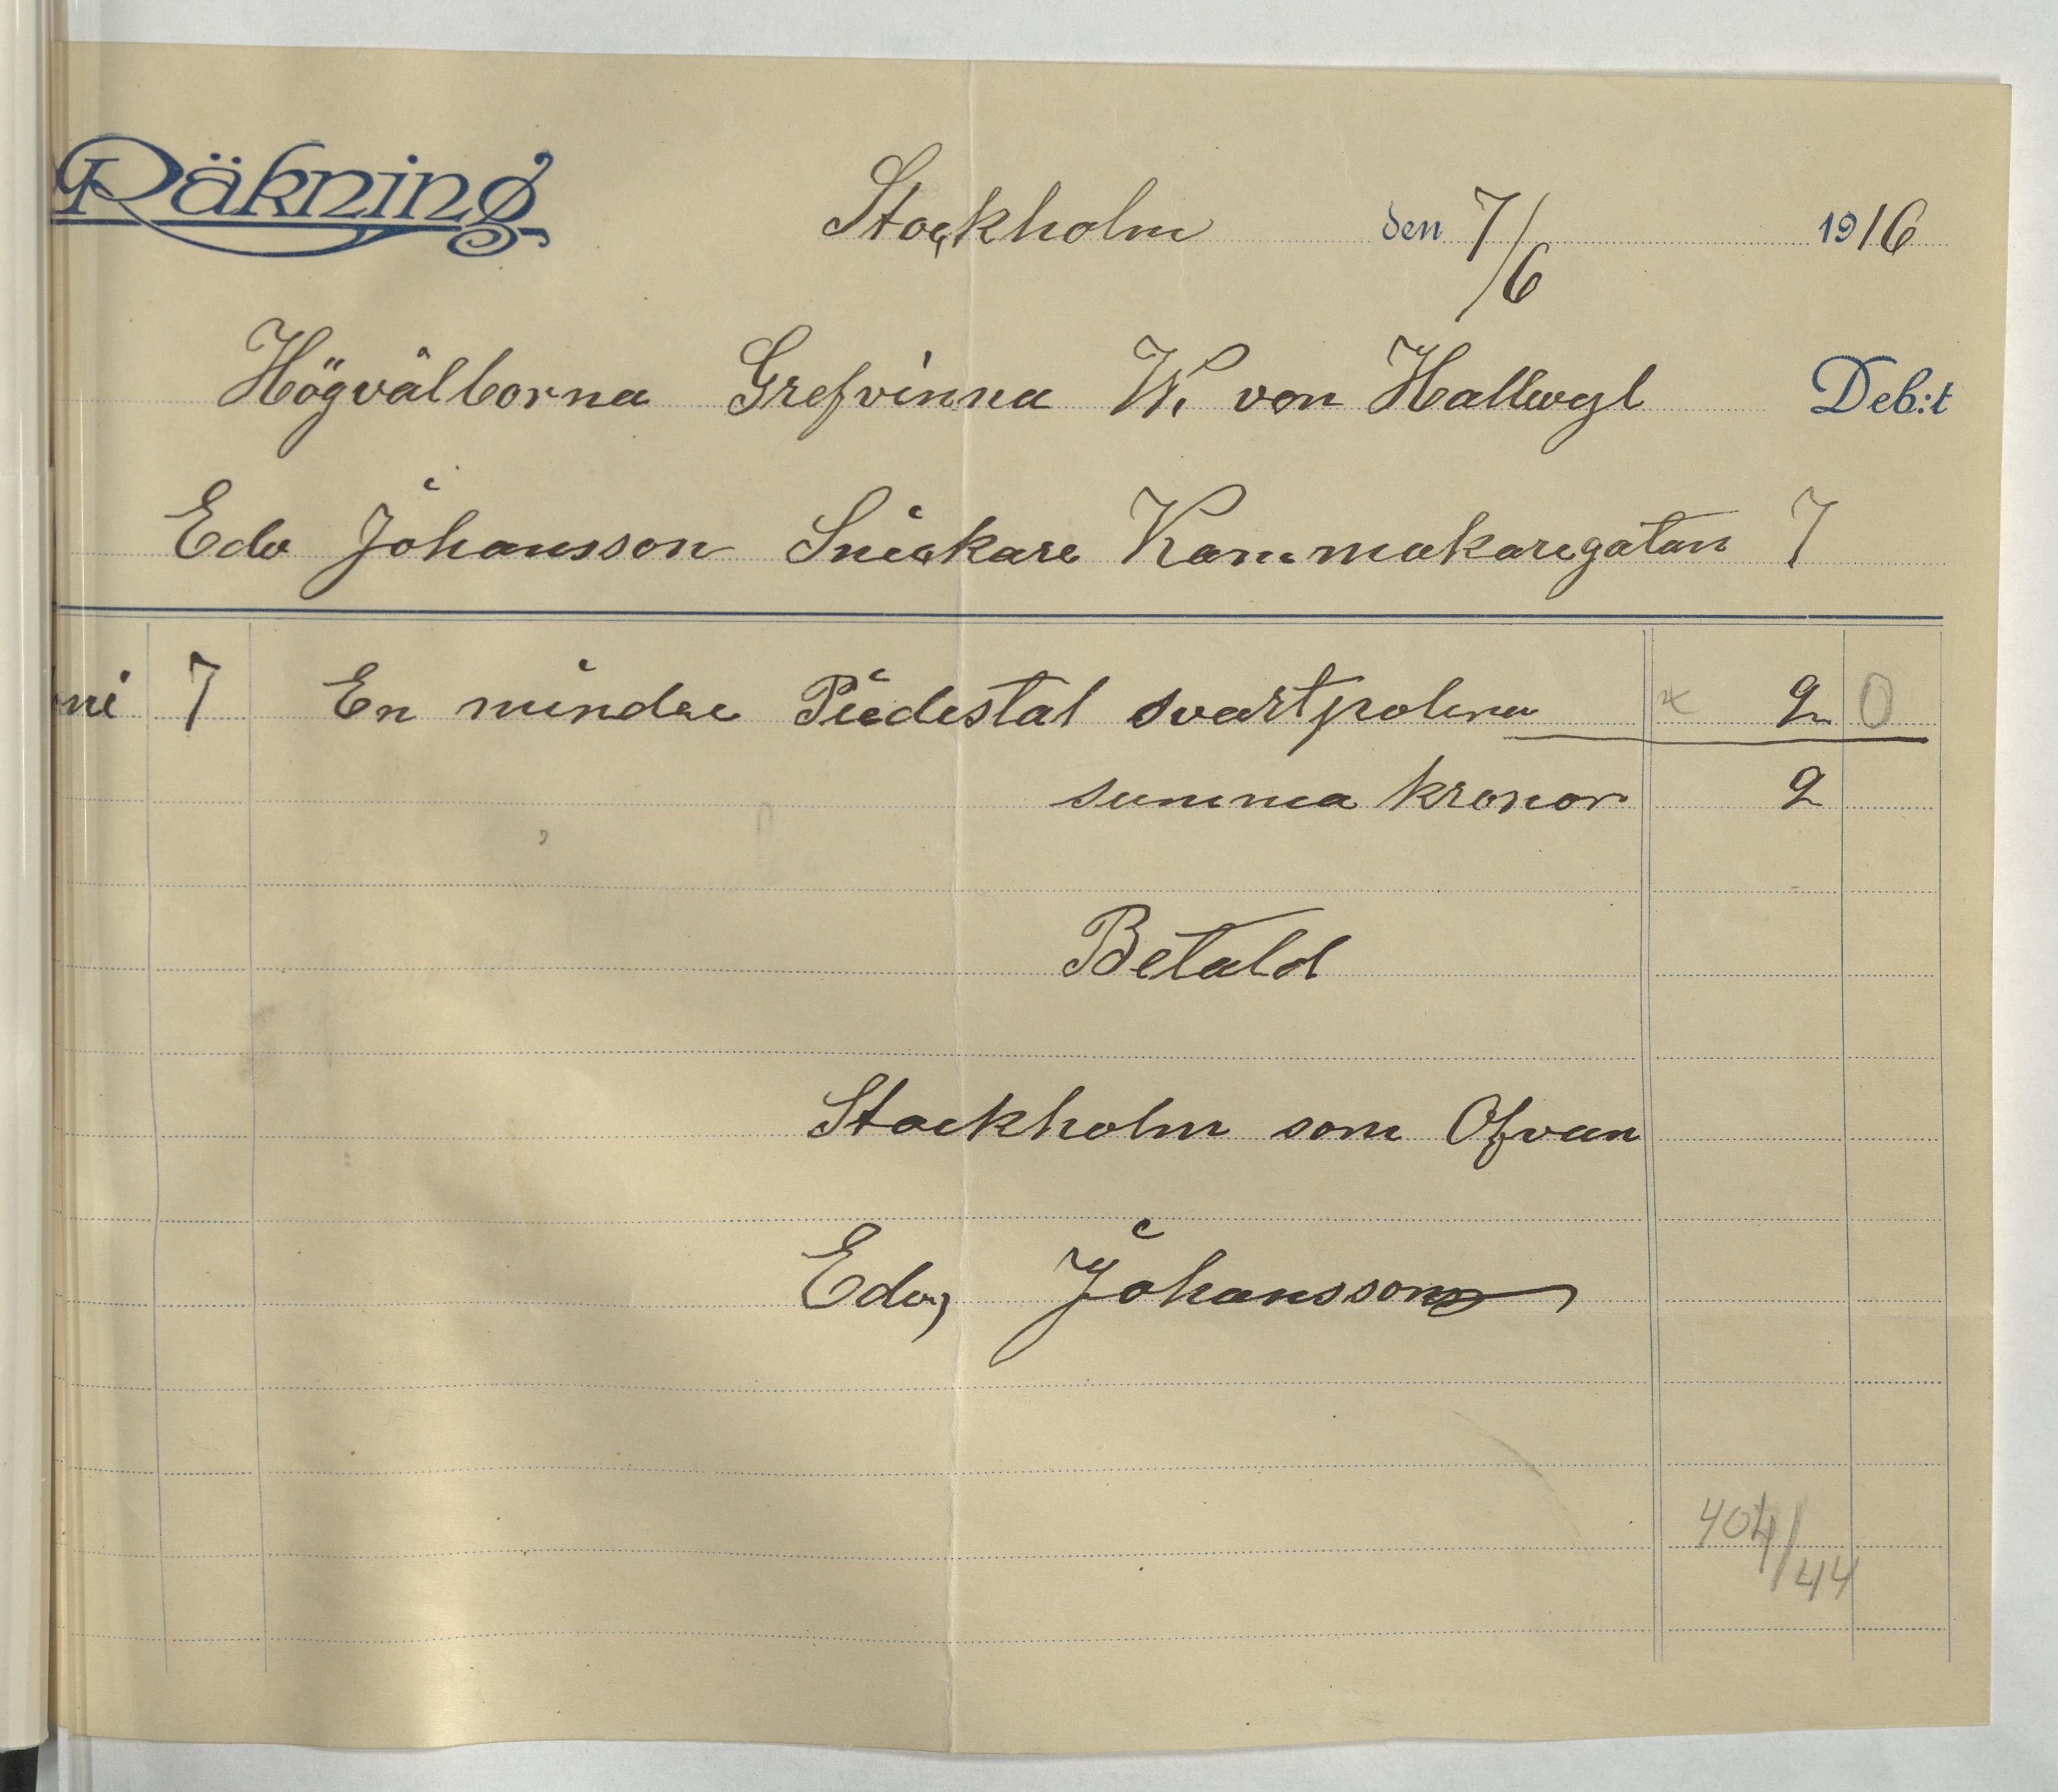 Räkning Stockholm den 7/6 1916
Högvälborna Grefvinna W. von Hallwyl Deb:t
Edv Johansson Snickare Kammakaregatan 7
ni 7 En mindre Piedestal svartpolera 9 0
summa kronor 9
Betald
Stockholm som Ofvan
Edv, Johansson
404/44